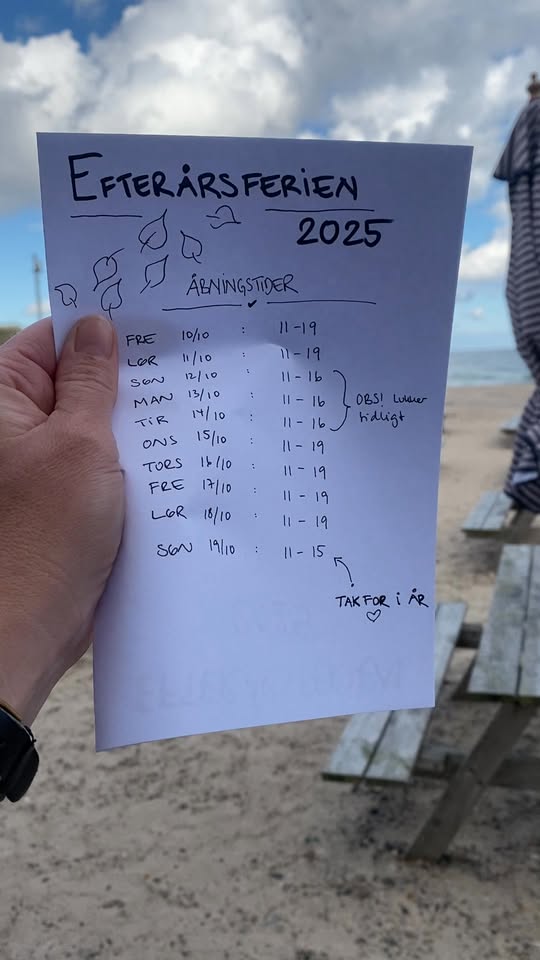 EFTERÅRSFERIEN
2025
ÅBNINGSTIDER
FRE 10/10 : 11-19
LØR 11/10 : 11-19
SØN 12/10 : 11-16
MAN 13/10 : 11-16
TIR 14/10 : 11-16
OBS! lukker
tidligt
ONS 15/10 : 11-19
TORS 16/10 : 11-19
FRE 17/10 : 11-19
LØR 18/10 : 11-19
SØN 19/10 : 11-15
TAK FOR I ÅR